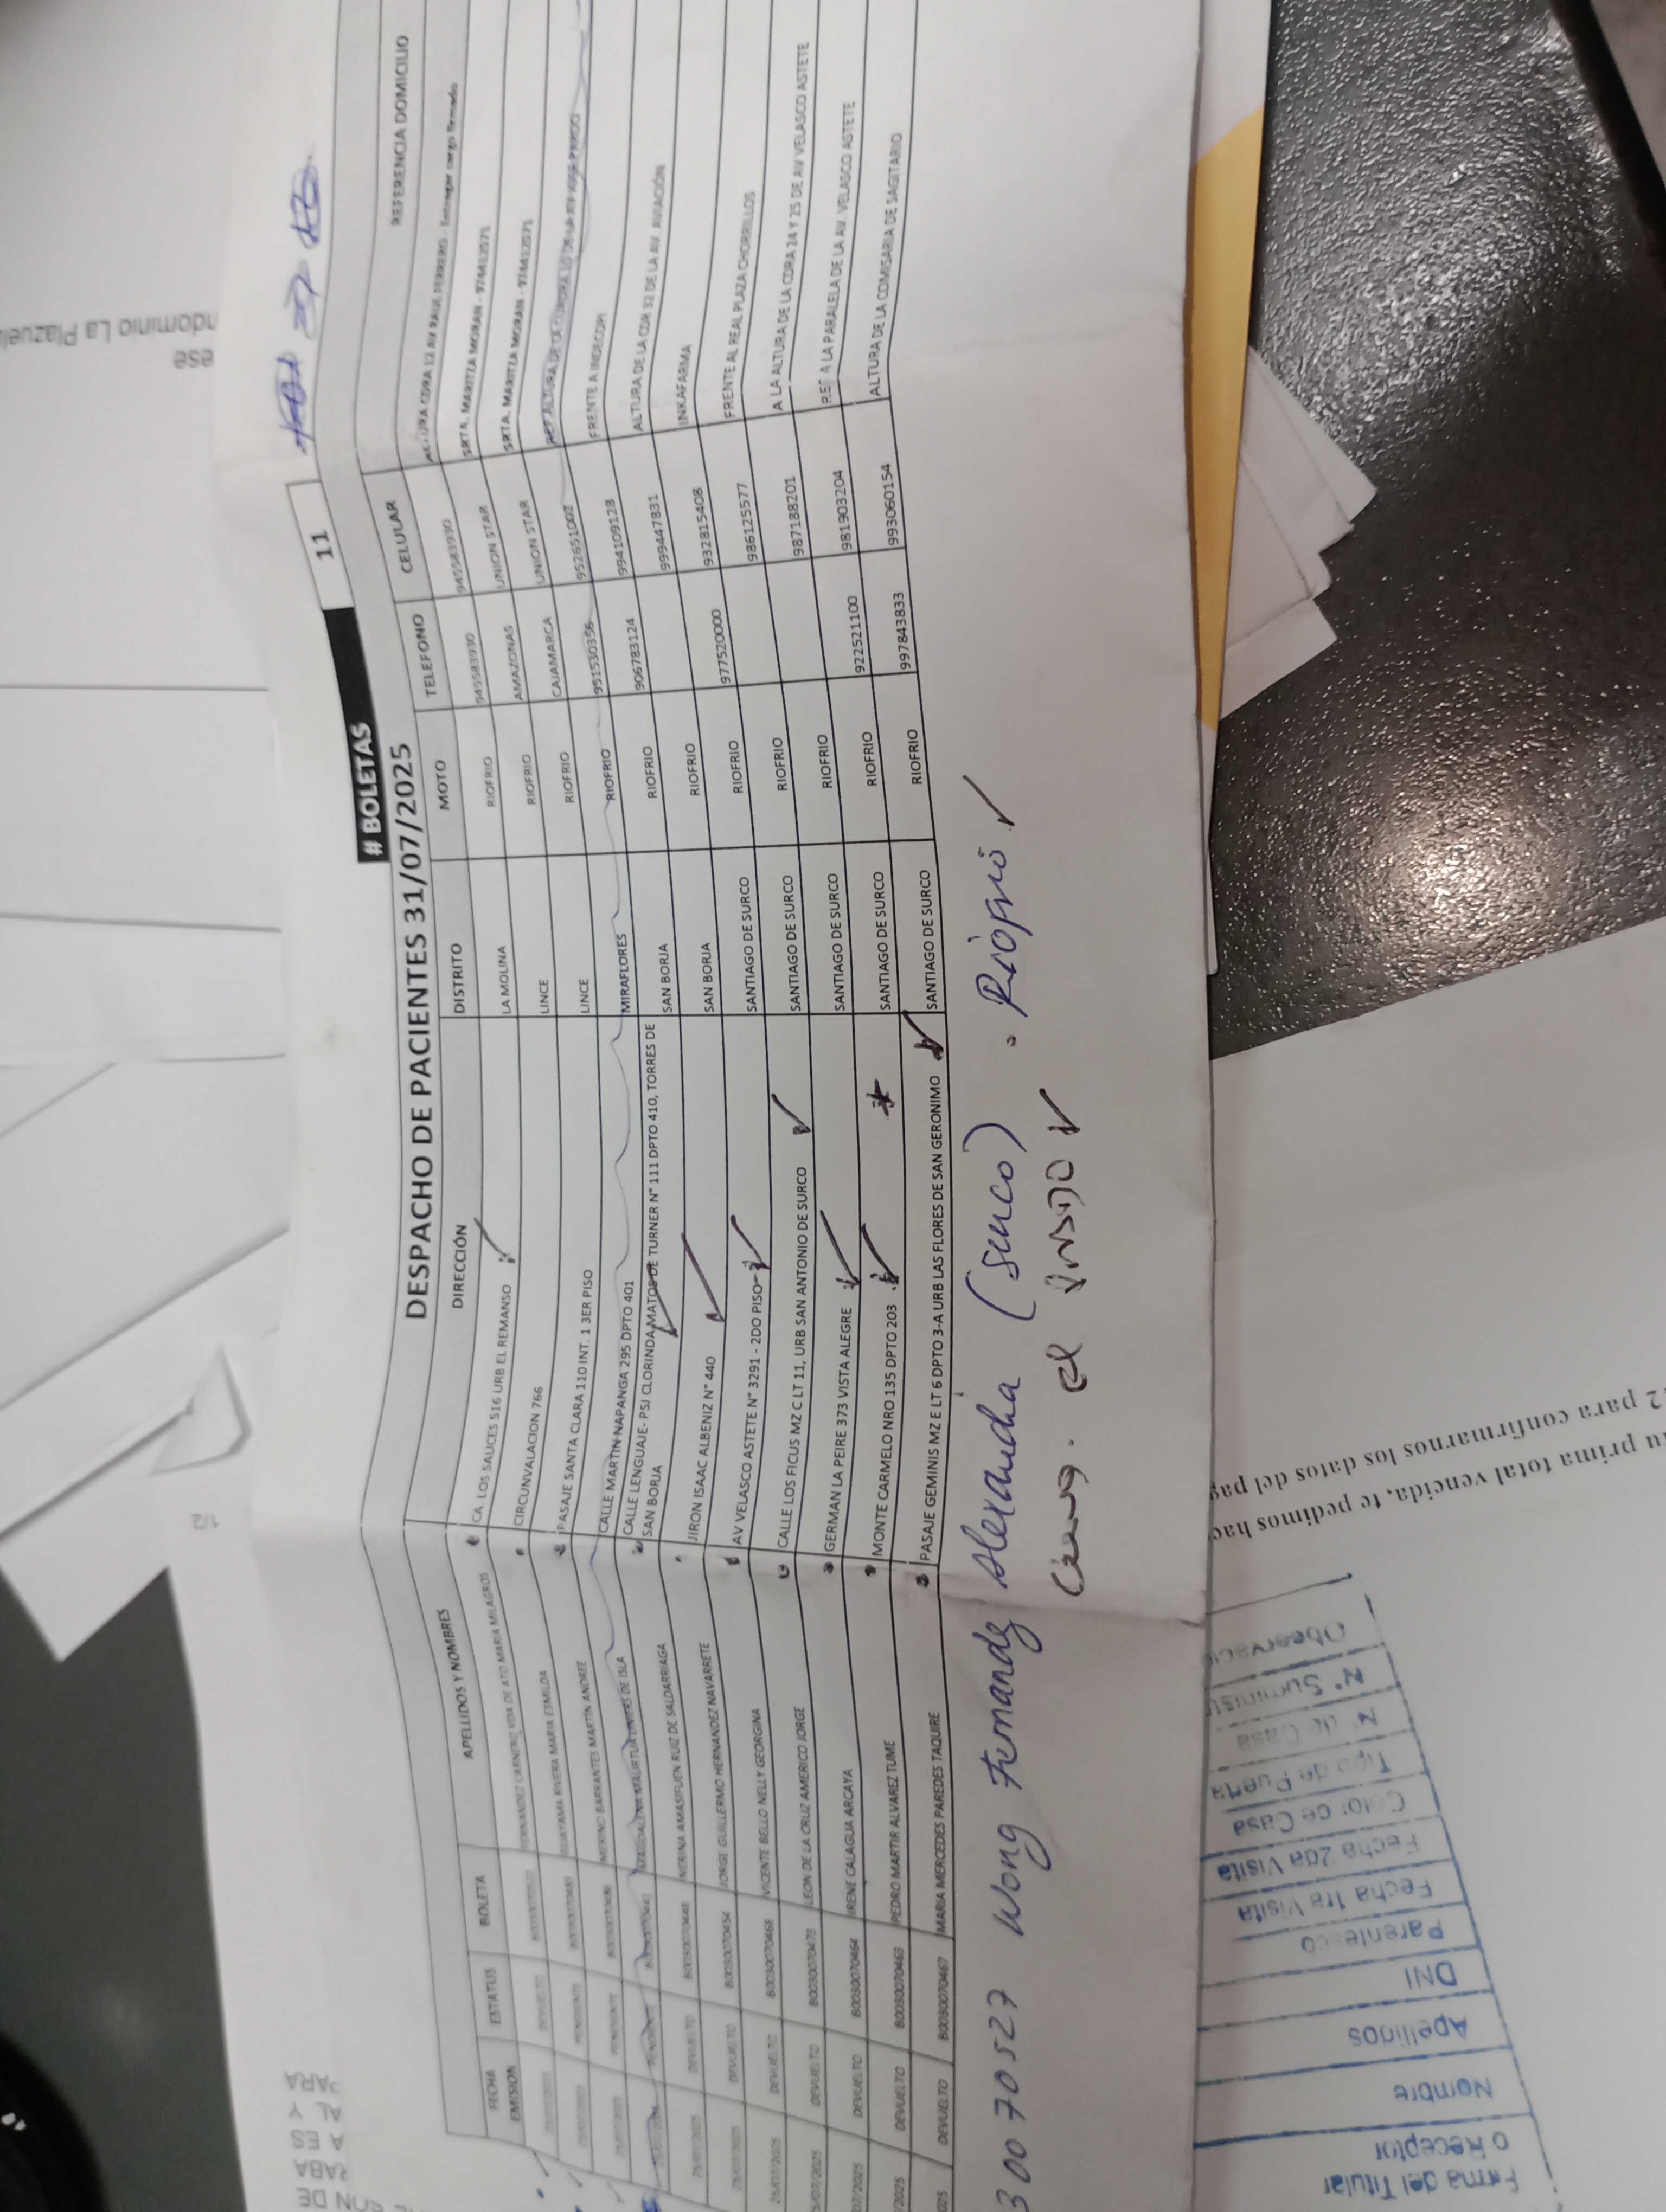 # BOLETAS 11
DESPACHO DE PACIENTES 31/07/2025
FECHA EMISION ESTATUS BOLETA APELLIDOS Y NOMBRES DIRECCIÓN DISTRITO MOTO TELEFONO CELULAR REFERENCIA DOMICILIO
DEVUELTO MARIA MILAGROS CA. LOS SAUCES 516 URB EL REMANSO LA MOLINA RIOFRIO 945583930 945583930
PENDIENTE RIVERA MARIA ESMILDA CIRCUNVALACION 766 LINCE RIOFRIO AMAZONAS UNION STAR SRTA. MARITZA MORAN - 974412571
PENDIENTE MERINO BARRANTES MARTIN ANDREE PASAJE SANTA CLARA 110 INT. 1 3ER PISO LINCE RIOFRIO CAJAMARCA UNION STAR SRTA. MARITZA MORAN - 974412571
CALLE MARTIN NAPANGA 295 DPTO 401 MIRAFLORES RIOFRIO 951530356 952651002
25/07/2025 DEVUELTO B0030070448 NERINA AMASIFUEN RUIZ DE SALDARRIAGA CALLE LENGUAJE- PSJ CLORINDA MATOS DE TURNER N° 111 DPTO 410, TORRES DE SAN BORJA SAN BORJA RIOFRIO 906783124 994109128 FRENTE A INDECOPI
25/07/2025 DEVUELTO B0030070454 JORGE GUILLERMO HERNANDEZ NAVARRETE JIRON ISAAC ALBENIZ N° 440 SAN BORJA RIOFRIO 999447831 ALTURA DE LA CDR 32 DE LA AV. AVIACIÓN
25/07/2025 DEVUELTO B0030070468 VICENTE BELLO NELLY GEORGINA AV VELASCO ASTETE N° 3291 - 2DO PISO SANTIAGO DE SURCO RIOFRIO 977520000 932815408 INKAFARMA
5/07/2025 DEVUELTO B0030070473 LEON DE LA CRUZ AMERICO JORGE CALLE LOS FICUS MZ C LT 11, URB SAN ANTONIO DE SURCO SANTIAGO DE SURCO RIOFRIO 986125577 FRENTE AL REAL PLAZA CHORRILLOS
07/2025 DEVUELTO B0030070464 IRENE CALAGUA ARCAYA GERMAN LA PEIRE 373 VISTA ALEGRE SANTIAGO DE SURCO RIOFRIO 987188201 A LA ALTURA DE LA CDRA 24 Y 25 DE AV VELASCO ASTETE
/2025 DEVUELTO B0030070463 PEDRO MARTIR ALVAREZ TUME MONTE CARMELO NRO 135 DPTO 203 SANTIAGO DE SURCO RIOFRIO 922521100 981903204 REF A LA PARALELA DE LA AV. VELASCO ASTETE
025 DEVUELTO B0030070467 MARIA MERCEDES PAREDES TAQUIRE PASAJE GEMINIS MZ E LT 6 DPTO 3-A URB LAS FLORES DE SAN GERONIMO SANTIAGO DE SURCO RIOFRIO 997843833 993060154 ALTURA DE LA COMISARIA DE SAGITARIO
30070527 Wong Fernandez Alexandra (surco) . Riofrio
el
ndominio La Plazuela
ese
1/2
PARA
AL Y
ES
ON DE
u prima total vencida, te pedimos hac
2 para confirmarnos los datos del pag
Firma del Titular
o Receptor
Nombre
Apellidos
DNI
Parentesco
Fecha 1ra Visita
Fecha 2da Visita
Color de Casa
Tipo de Puerta
N° de Casa
N° Suminist
Observaci